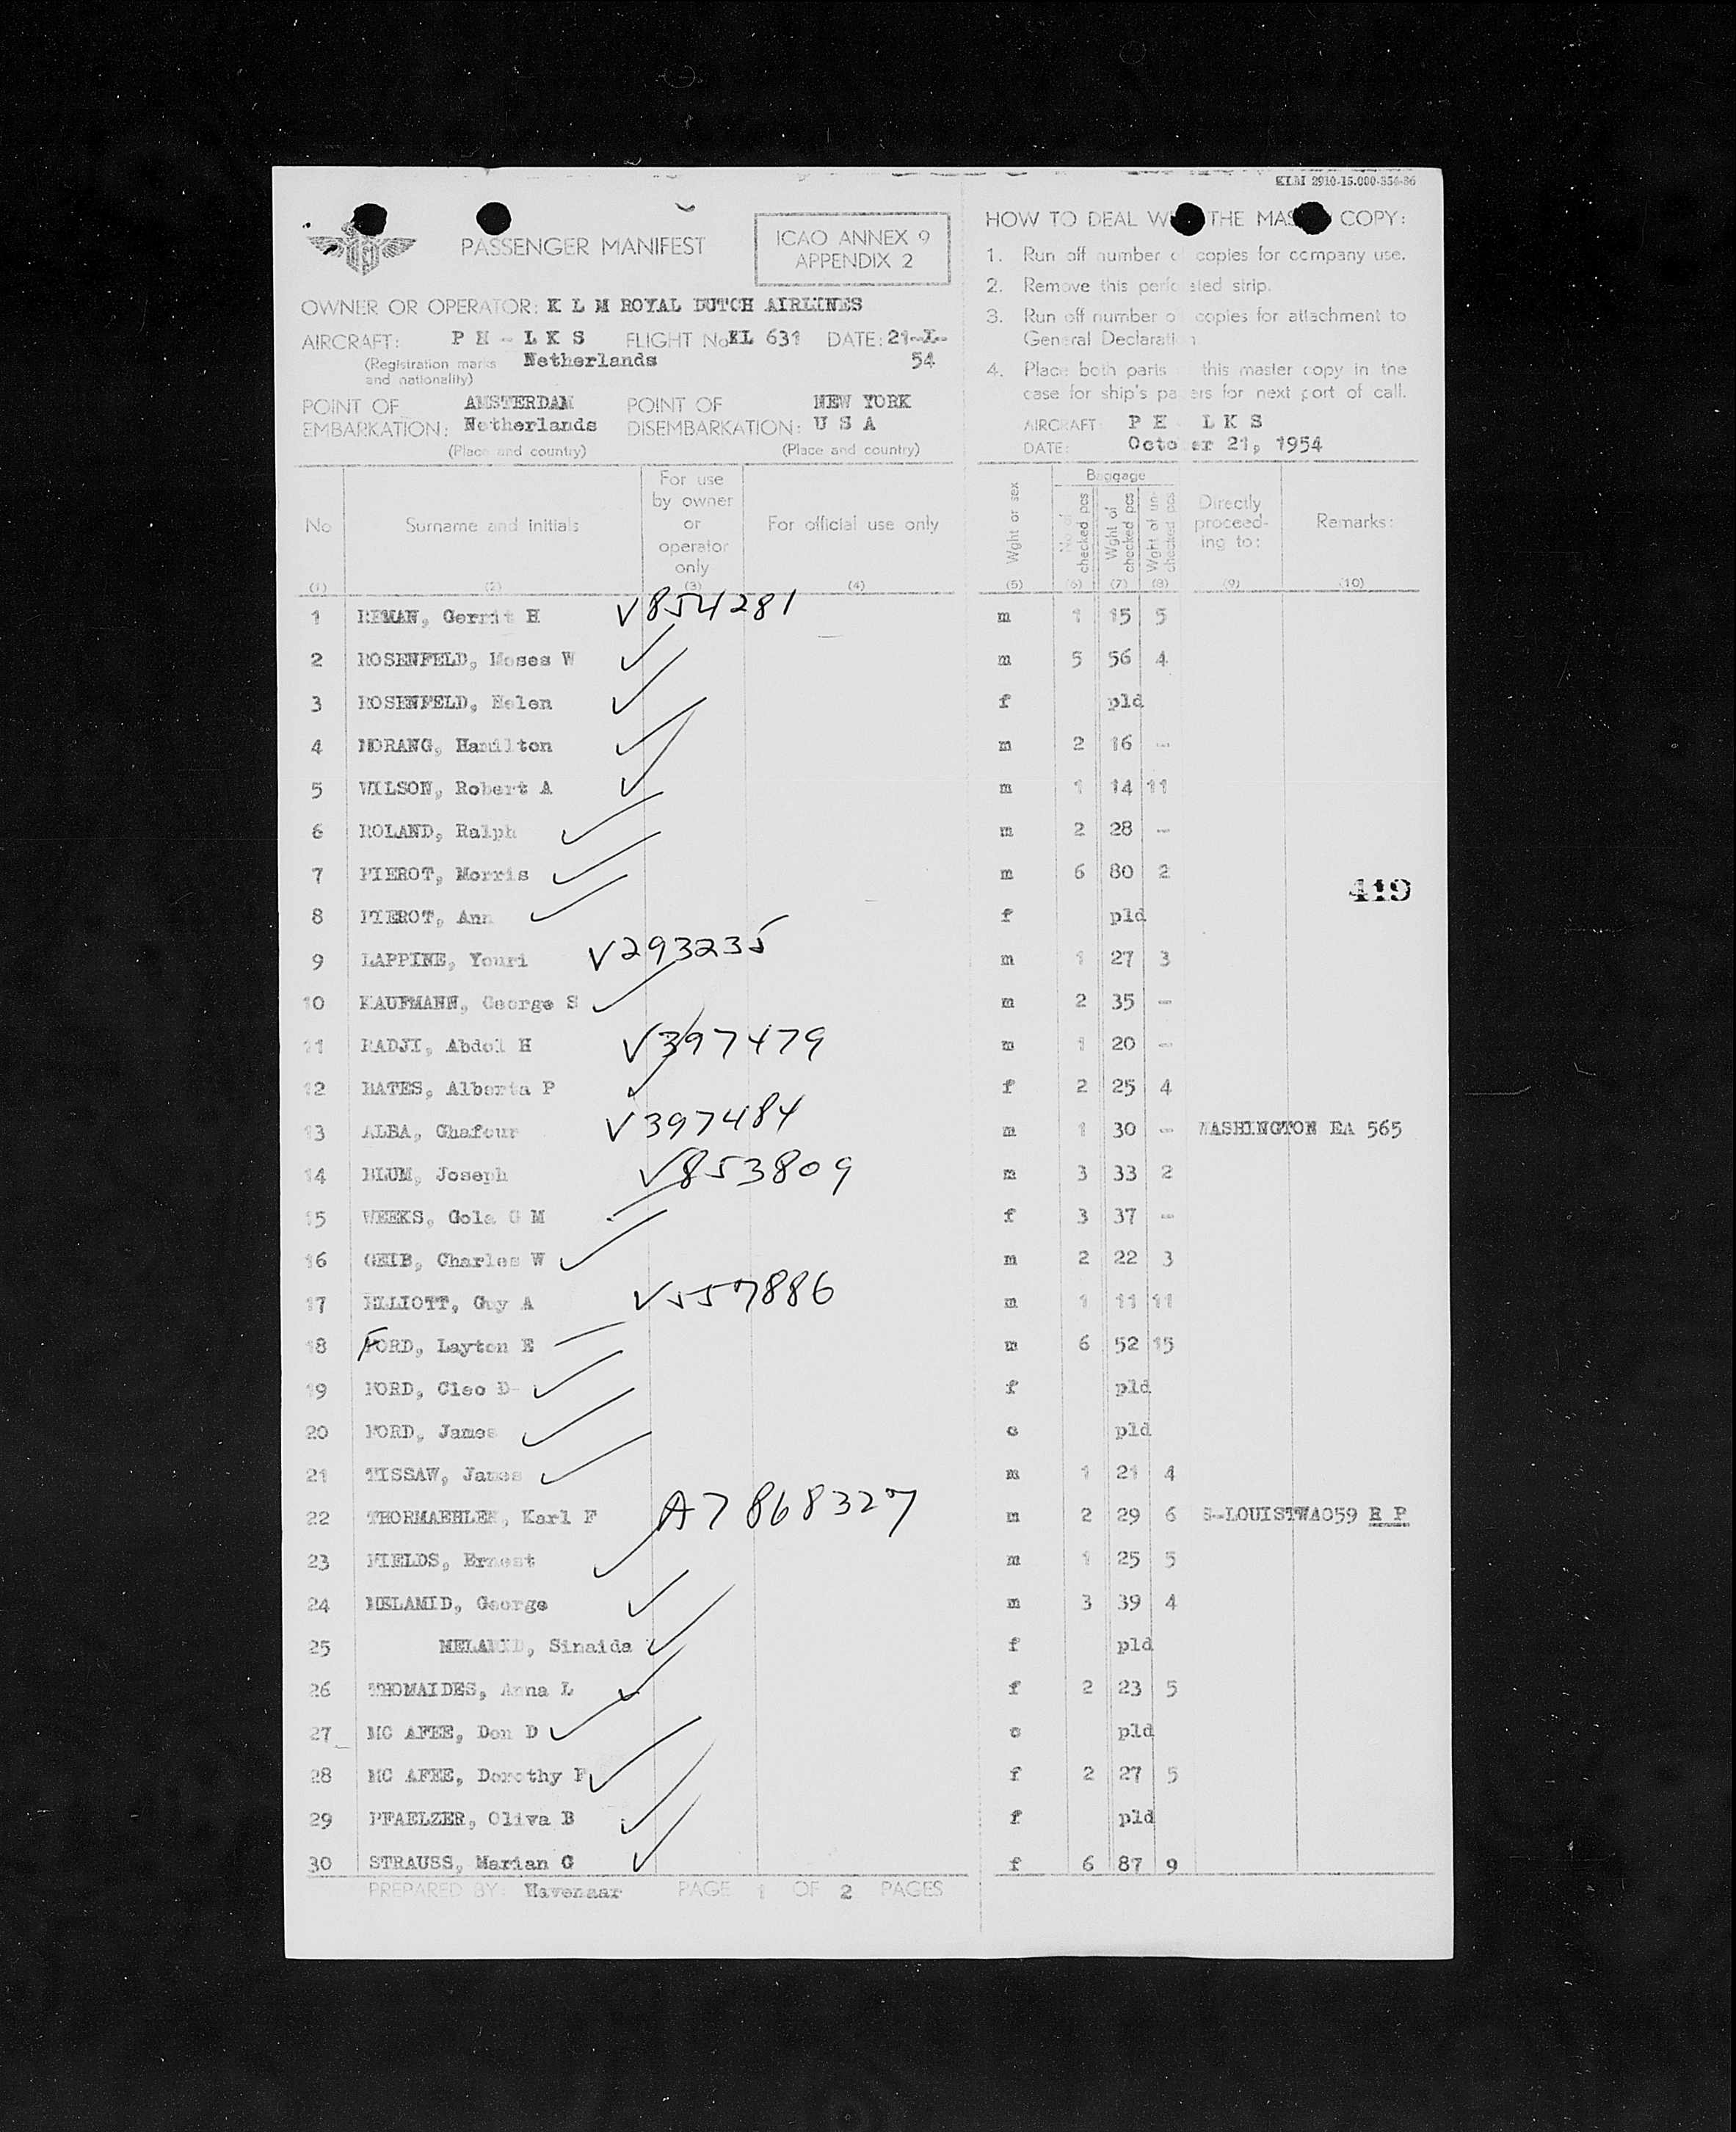 KLM 2910-15.000-354-86
PASSENGER MANIFEST
ICAO ANNEX 9
APPENDIX 2
OWNER OR OPERATOR: K L M ROYAL DUTCH AIRLINES
AIRCRAFT: P H - L K S FLIGHT No KL 631 DATE: 21-X-54
(Registration marks and nationality) Netherlands
POINT OF EMBARKATION: AMSTERDAM Netherlands
POINT OF DISEMBARKATION: NEW YORK U S A
(Place and country) (Place and country)
HOW TO DEAL W THE MAS COPY:
1. Run off number of copies for company use.
2. Remove this perforated strip.
3. Run off number of copies for attachment to
General Declaration
4. Place both parts this master copy in the
case for ship's papers for next port of call.
AIRCRAFT P H L K S
DATE: October 21, 1954
No Surname and initials For use by owner or operator only For official use only Wght or sex Baggage No of checked pcs Wght of checked pcs Wght of un-checked pcs Directly proceed-ing to: Remarks:
(1) (2) (3) (4) (5) (6) (7) (8) (9) (10)
1 REMAN, Gerrit H V854281 m 1 15 5
2 ROSENFELD, Moses W ✓ m 5 56 4
3 ROSENFELD, Helen ✓ f pld
4 MORANG, Hamilton ✓ m 2 16 -
5 WILSON, Robert A ✓ m 1 14 11
6 ROLAND, Ralph ✓ m 2 28 -
7 PIEROT, Morris ✓ m 6 80 2
419
8 PIEROT, Ann ✓ f pld
9 LAPPINE, Youri V293235 m 1 27 3
10 KAUFMANN, George S ✓ m 2 35 -
11 RADJI, Abdol H V397479 m 1 20 -
12 BATES, Alberta P ✓ f 2 25 4
13 ALBA, Ghafour V397484 m 1 30 - WASHINGTON EA 565
14 BLUM, Joseph V853809 m 3 33 2
15 WEEKS, Gola G M f 3 37 -
16 GEIB, Charles W ✓ m 2 22 3
17 ELLIOTT, Guy A V557886 m 1 11 11
18 FORD, Layton E m 6 52 15
19 FORD, Cleo D ✓ f pld
20 FORD, James ✓ c pld
21 TISSAW, James ✓ m 1 21 4
22 THORMAEHLEN, Karl F A7868327 m 2 29 6 S-LOUISTWA059 R P
23 FIELDS, Ernest ✓ m 1 25 5
24 MELAMID, George ✓ m 3 39 4
25 MELAMID, Sinaida ✓ f pld
26 THOMAIDES, Anna L ✓ f 2 23 5
27 MC AFEE, Don D ✓ c pld
28 MC AFEE, Dorothy F ✓ f 2 27 5
29 PFAELZER, Oliva B ✓ f pld
30 STRAUSS, Marian G ✓ f 6 87 9
PREPARED BY: Havenaar PAGE 1 OF 2 PAGES